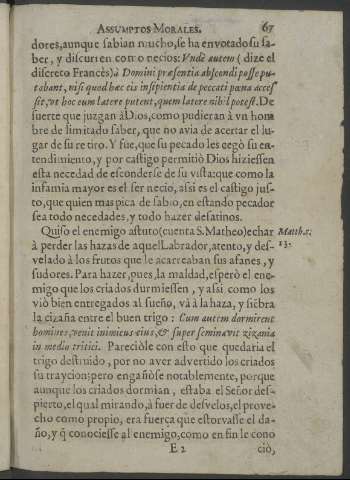 ASSUMPTOS MORALES. 67
dores, aunque sabian mucho, se ha envotado su sa-
ber, y discurren como necios: Vndè autem (dize el
discreto Francès) à Domini præsentia abscondi posse pu-
tabant, nisi quod hæc eis insipientia de peccati pœna acces
sit, vt hoc eum latere putent, quem latere nihil potest. De
suerte que juzgan à Dios, como pudieran à vn hom
bre de limitado saber, que no avia de acertar el lu-
gar de su retiro. Y fue, que su pecado les cegò su en-
tendimiento, y por castigo permitiò Dios hiziessen
esta necedad de esconderse de su vista: que como la
infamia mayor es el ser necio, assi es el castigo jus-
to, que quien mas pica de sabio, en estando pecador
sea todo necedades, y todo hazer desatinos.
Quiso el enemigo astuto (cuenta S. Matheo) echar Matth. c.
à perder las hazas de aquel Labrador, atento, y des- 13.
velado à los frutos que le acarreaban sus afanes, y
sudores. Para hazer, pues, la maldad, esperò el ene-
migo que los criados durmiessen, y assi como los
viò bien entregados al sueño, và à la haza, y siēbra
la cizaña entre el buen trigo: Cum autem dormirent
homines, venit inimicus eius, & super seminavit zizania
in medio tritici. Pareciòle con esto que quedaria el
trigo destruido, por no aver advertido los criados
su traycion: pero engañòse notablemente, porque
aunque los criados dormian, estaba el Señor des-
pierto, el qual mirando, à fuer de desvelos, el prove-
cho como propio, era fuerça que estorvasse el da-
ño, y q̃ conociesse al enemigo, como en fin le cono
E 2 ciò,